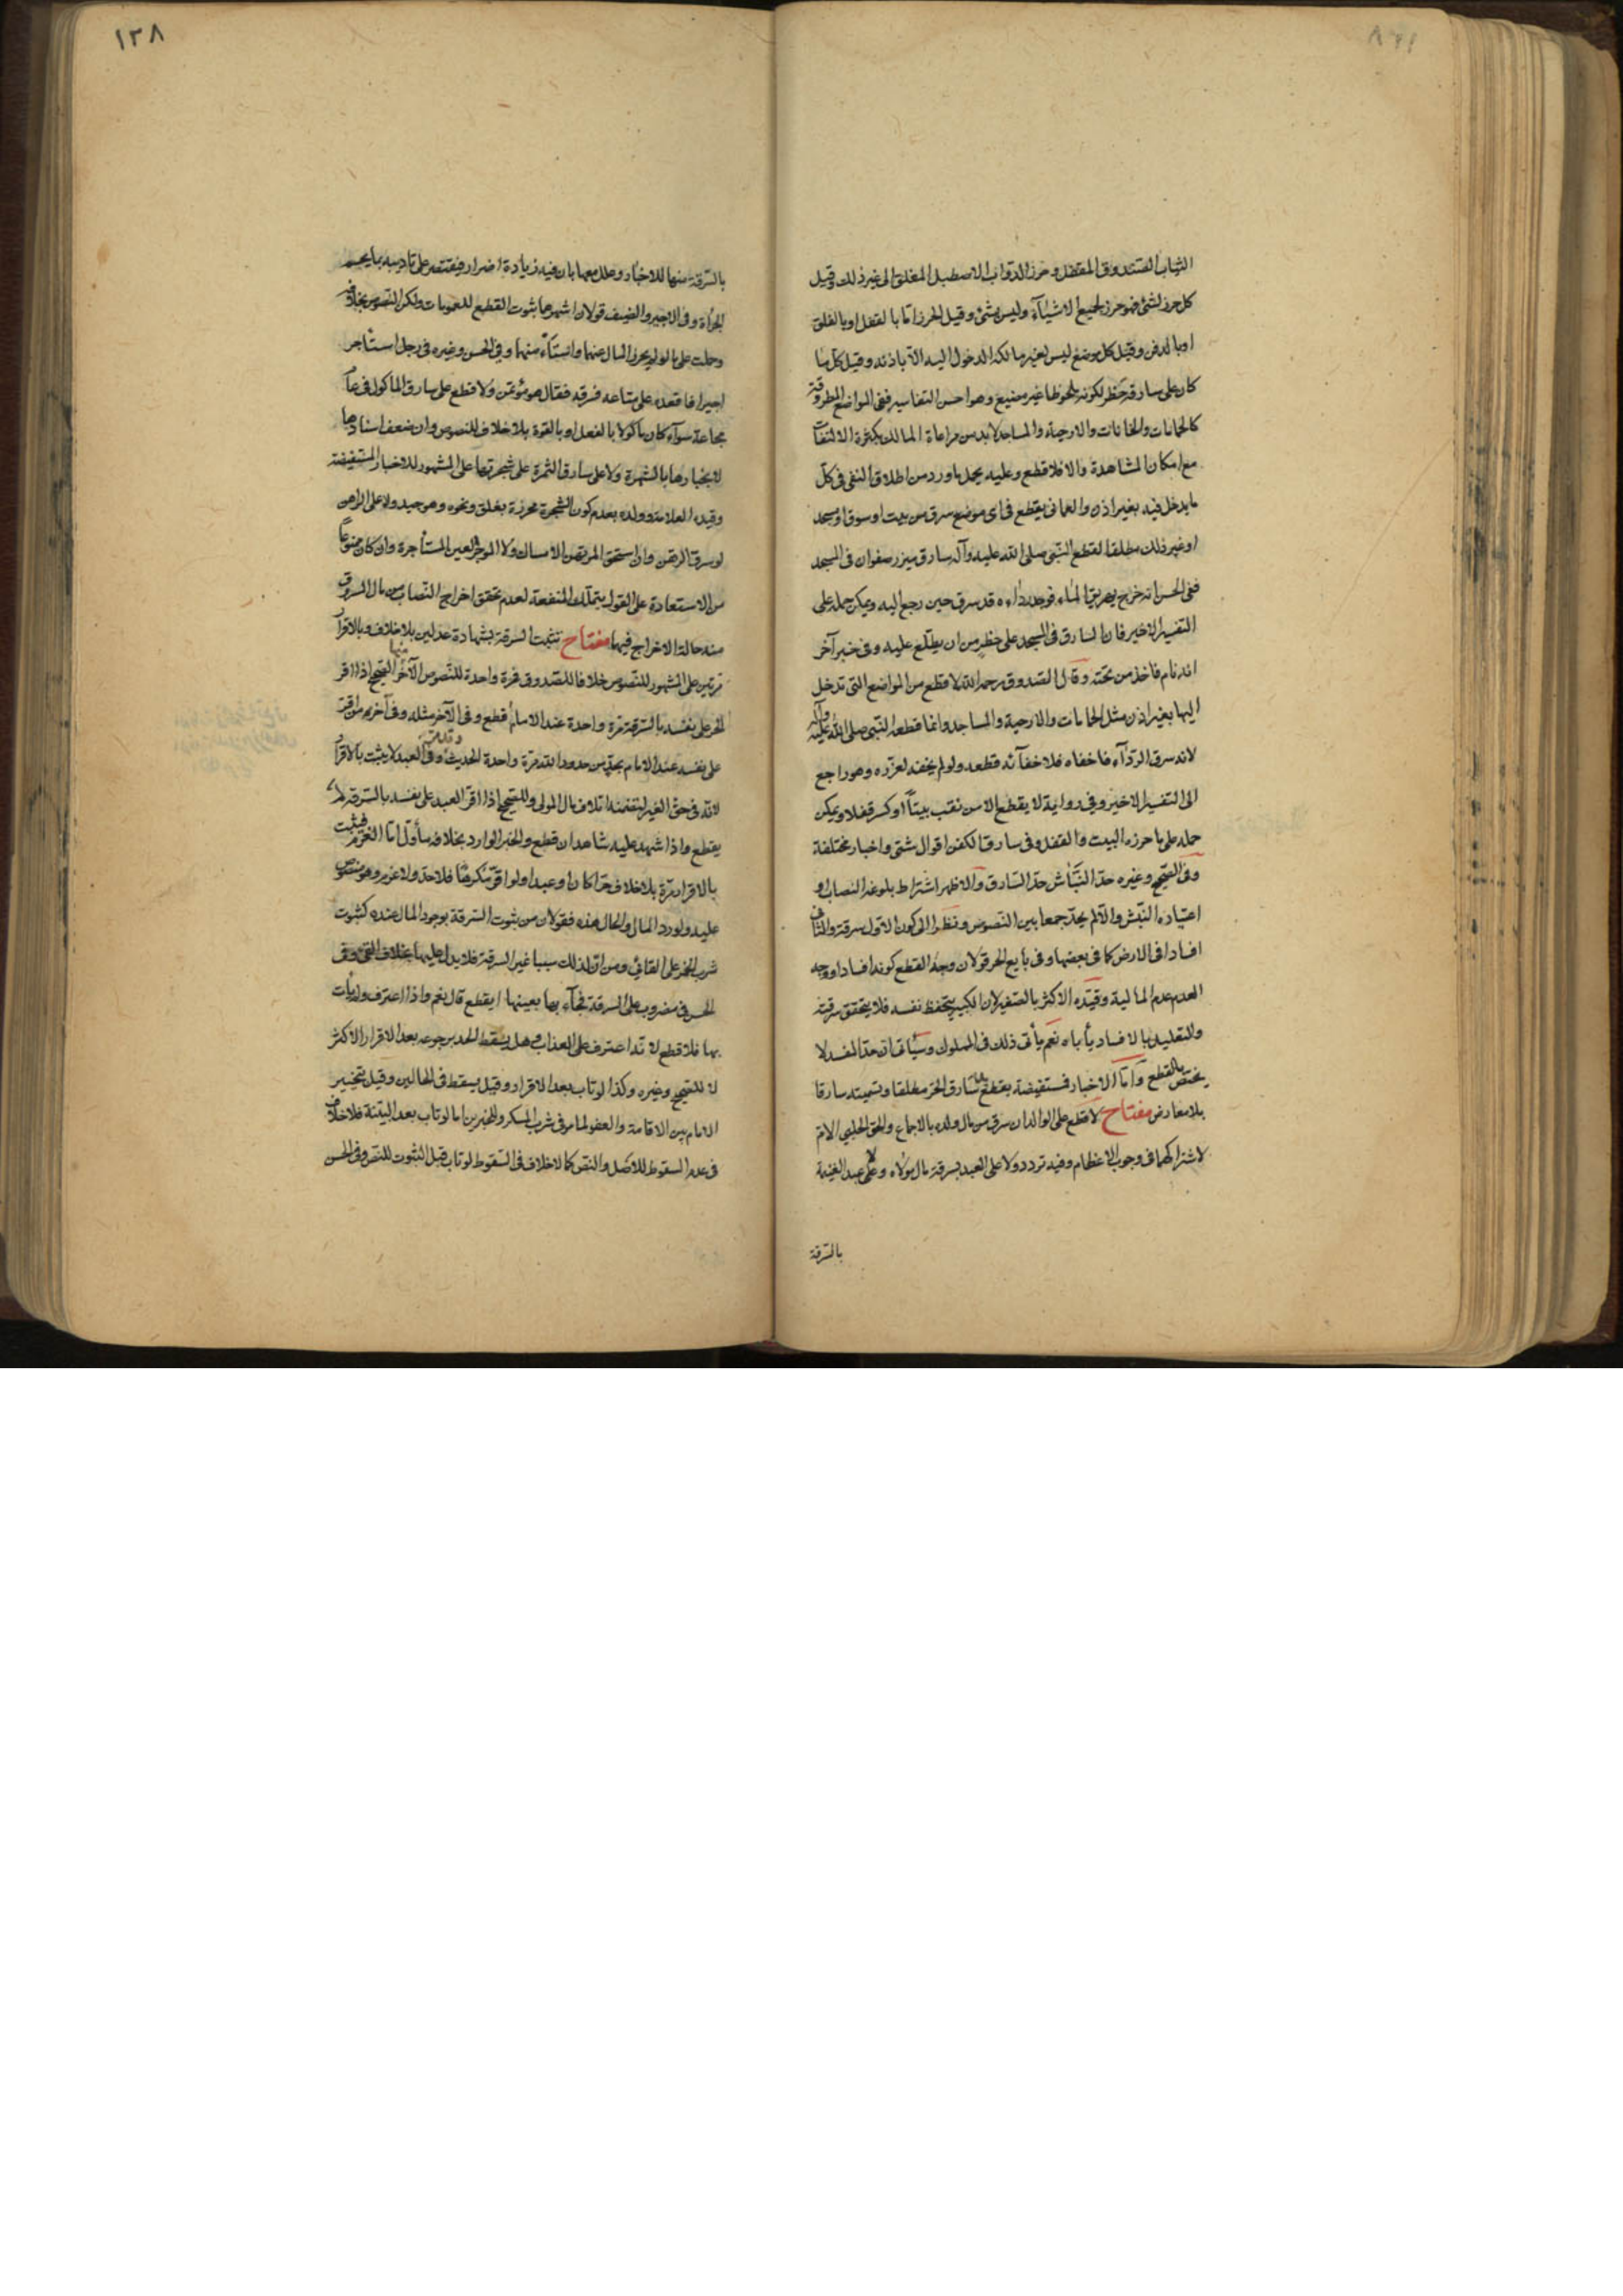 الثياب الصندوق المقفل وحرز الدواب الاصطبل المغلق الى غير ذلك وقيل
كل حرز لشئ فهو حرز لجميع الاشيآء وليس بشئ وقيل الحرز اما بالقفل او بالغلق
او بالدفن وقيل كل موضع ليس لغير مالكه الدخول اليه الا باذنه وقيل كل ما
كان على سارقه خطر لكونه ملحوظا غير مضيع وهو احسن التفاسير ففى المواضع المطروقة
كالحمامات والخانات والارحية والمساجد لابد من مراعاة المالك بكثرة الالتفات
مع امكان المشاهدة والا فلا قطع وعليه يحمل ما ورد من اطلاق النفى فى كل
ما يدخل فيه بغير اذن والعمانى يقطع فى اى موضع سرق من بيت او سوق او مسجد
او غير ذلك مطلقا لقطع النبى صلى الله عليه وآله سارق ميزر صفوان فى المسجد
ففى الحسن انه خرج يهريق الماء فوجد رداءه قد سرق حين رجع اليه ويمكن حمله على
التفسير الاخير فان السارق فى المسجد على خطر من ان يطلع عليه وفى خبر آخر
انه نام فاخذ من تحته وقال الصدوق رحمه الله لا قطع من المواضع التى تدخل
اليها بغير اذن مثل الحمامات والارحية والمساجد وانما قطعه النبى صلى الله عليه وآله
لانه سرق الردآء فاخفاه فلاخفآئه قطعه ولو لم يخفه لعزره وهو راجع
الى التفسير الاخير وفى رواية لا يقطع الا من نقب بيتا او كسر قفلا ويمكن
حمله على ما حرزه البيت والقفل وفى سارق الكفن اقوال شتى واخبار مختلفة
وفى الصحيح وغيره حد النباش حد السارق والاظهر اشتراط بلوغه النصاب او
اعتياده النبش والا لم يحد جمعا بين النصوص ونظرا الى كون الاول سرقة والثانى
افسادا فى الارض كما فى بعضها وفى بايع الحر قولان وجه القطع كونه افسادا ووجه
العدم عدم المالية وقيده الاكثر بالصغير لان الكبير يتحفظ نفسه فلا يتحقق سرقته
والتعليل بالافساد يأباه نعم يأتى ذلك فى المملوك وسيأتى ان حد المفسد لا
يختص بالقطع واما الاخبار فمستفيضة بقطع سارق الحر مطلقا وتسميته سارقا
بلا معارض مفتاح لا قطع على الوالد ان سرق من مال ولده بالاجماع والحق الحلبى الام
لاشتراكهما فى وجوب الاعظام وفيه تردد ولا على العبد بسرقة مال مولاه ولا على عبد الغنيمة
بالسرقة
١٣٨
بالسرقة منها للاخبار وعلل معها بان فيه زيادة اضرار فيقتصر على تاديبه بما يحسم
الجرأة وفى الاجير والضيف قولان اشهرهما ثبوت القطع للعمومات ولكن النصوص بخلافه
وحملت على ما لو لم يحرز المال عنهما وانستأمنهما وفى الحسن وغيره فى رجل استأجر
اجيرا فاقعده على متاعه فسرقه فقال هو مؤتمن ولا قطع على سارق الماكول فى عام
مجاعة سوآء كان ماكولا بالفعل او بالقوة بلا خلاف للنصوص وان ضعف اسنادها
لانجبارها بالشهرة ولا على سارق الثمرة على شجرتها على المشهور للاخبار المستفيضة
وقيده العلامة وولده بعدم كون الشجرة محرزة بغلق ونحوه وهو جيد ولا على الراهن
لو سرق الرهن وان استحق المرتهن الامساك ولا الموجر العين المستأجرة وان كان ممنوعا
من الاستعادة على القول بتملك المنفعة لعدم تحقق اخراج النصاب من مال المسروق
منه حالة الاخراج فيهما مفتاح تثبت السرقة بشهادة عدلين بلا خلاف وبالاقرار
مرتين على المشهور للنصوص خلافا للصدوق فمرة واحدة للنصوص الآخر منها الصحيح اذا اقر
الحر على نفسه بالسرقة مرة واحدة عند الامام قطع وفى الآخر مثله وفى آخر من اقر
على نفسه عند الامام بحد من حدود الله مرة واحدة الحديث وفى العبد لا يثبت بالاقرار
لانه فى حق الغير لتضمنه اتلاف مال المولى وللصحيح اذا اقر العبد على نفسه بالسرقة لم
يقطع واذا شهد عليه شاهدان قطع والخبر الوارد بخلافه مأول اما الغرم فيثبت
بالاقرار مرة بلا خلاف حرا كان او عبدا ولو اقر مكرها فلا حد ولا غرم وهو منصوص
عليه ولو رد المال والحال هذه فقولان من ثبوت السرقة بوجود المال عنده كثبوت
شرب الخمر على القائى ومن ان لذلك سببا غير السرقة فلا يدل عليها بخلاف القئ وفى
الحسن فى مضروب على السرقة فجآء بها بعينها ايقطع قال نعم واذا اعترف ولم يأت
بها فلا قطع لانه اعترف على العذاب وهل يسقط الحد برجوعه بعد الاقرار الاكثر
لا للصحيح وغيره وكذا لو تاب بعد الاقرار وقيل يسقط فى الحالين وقيل بتخيير
الامام بين الاقامة والعفو لما مر فى شرب المسكر وللخبرين اما لو تاب بعد البينة فلا خلاف
فى عدم السقوط للاصل والنص كما لا خلاف فى السقوط لو تاب قبل الثبوت للنص وفى الحسن